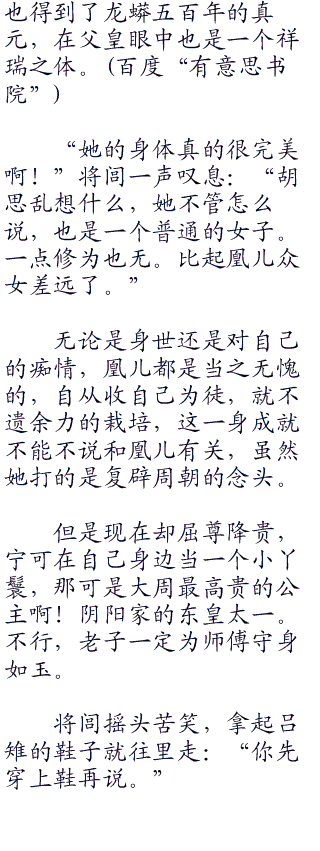 也得到了龙蟒五百年的真
元，在父皇眼中也是一个祥
瑞之体。(百度“有意思书
院”)
“她的身体真的很完美
啊！”将闾一声叹息：“胡
思乱想什么，她不管怎么
说，也是一个普通的女子。
一点修为也无。比起凰儿众
女差远了。”
无论是身世还是对自己
的痴情，凰儿都是当之无愧
的，自从收自己为徒，就不
遗余力的栽培，这一身成就
不能不说和凰儿有关，虽然
她打的是复辟周朝的念头。
但是现在却屈尊降贵，
宁可在自己身边当一个小丫
鬟，那可是大周最高贵的公
主啊！阴阳家的东皇太一。
不行，老子一定为师傅守身
如玉。
将闾摇头苦笑，拿起吕
雉的鞋子就往里走：“你先
穿上鞋再说。”